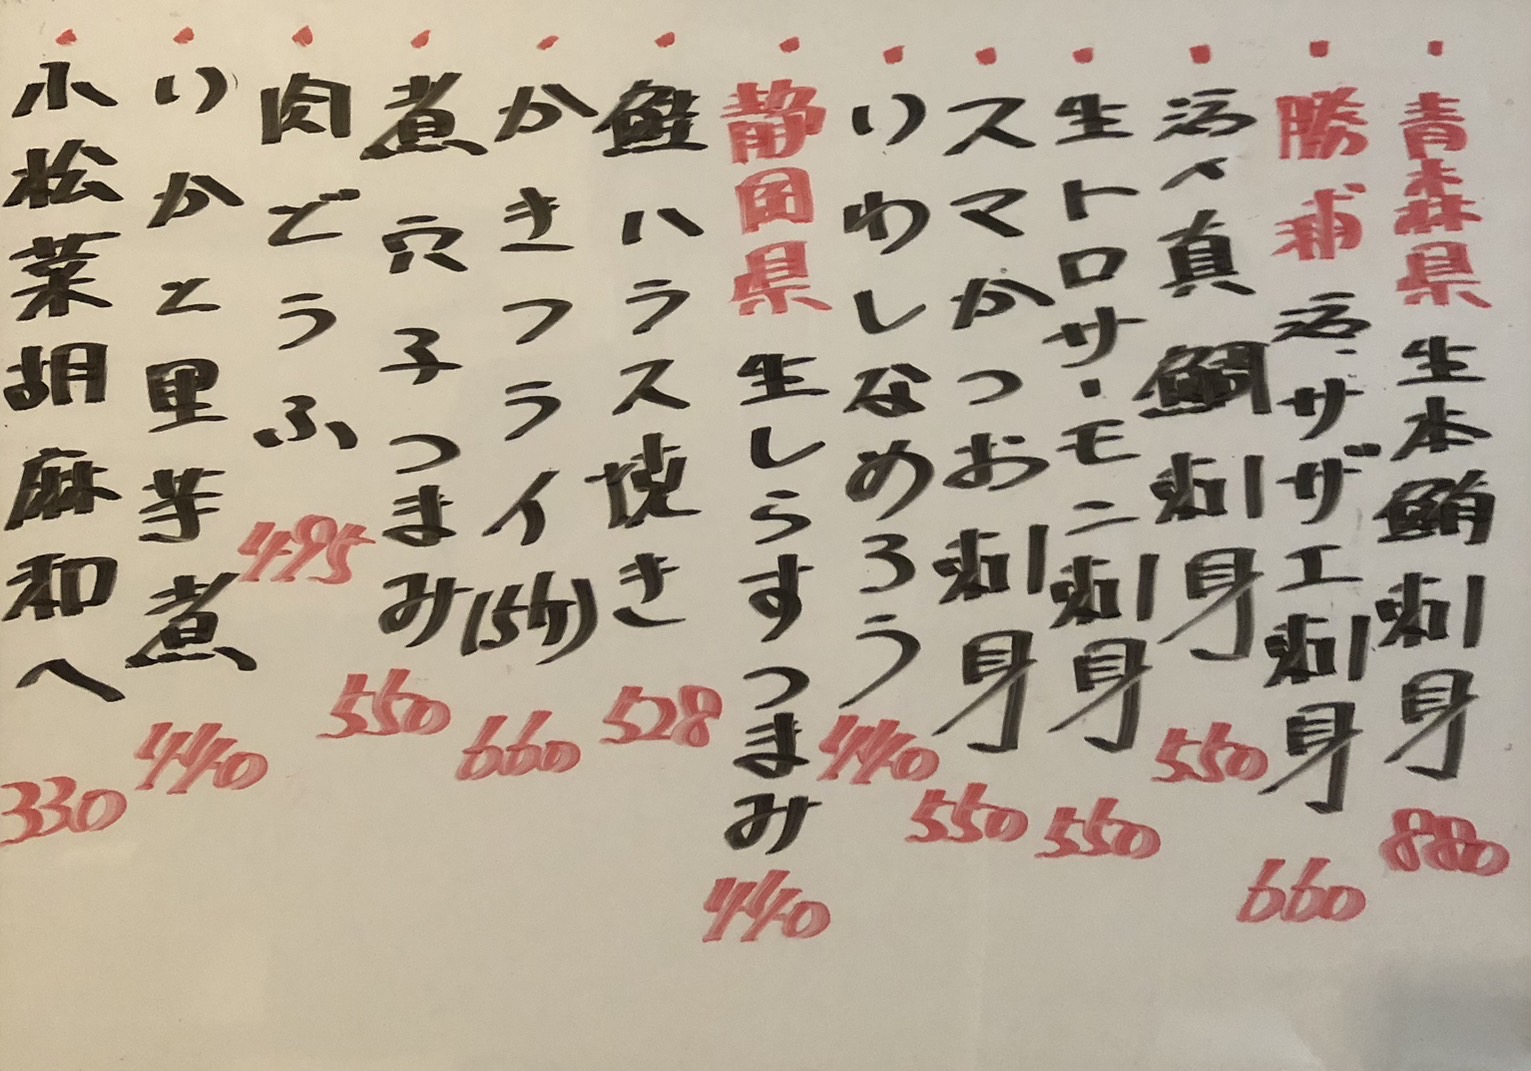 ・青森県生本鮪刺身 880
・勝浦活サザエ刺身 660
・活〆真鯛刺身 550
・生トロサーモン刺身 550
・スマかつお刺身 550
・いわしなめろう 440
・静岡県生しらすつまみ 440
・鮭ハラス焼き 528
・かきフライ(5ケ) 660
・煮穴子つまみ 550
・肉どうふ 495
・いかと里芋煮 440
・小松菜胡麻和へ 330